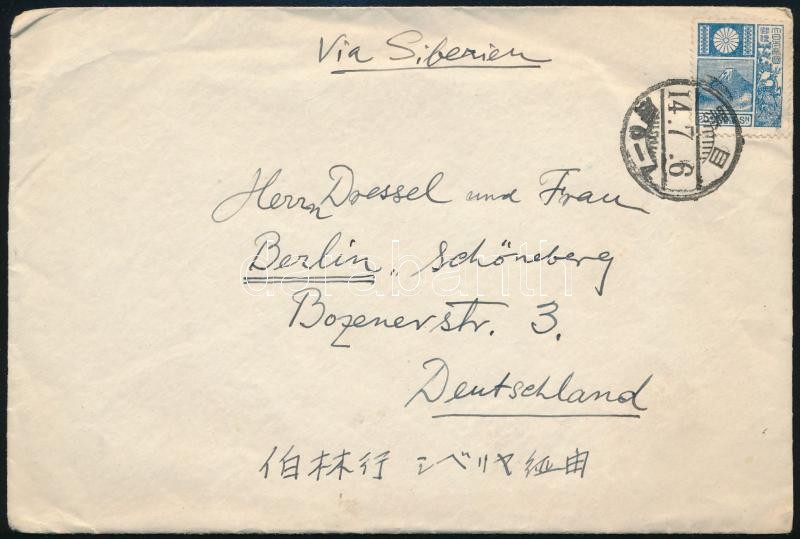 Via Siberien
14.7.6
Herrn Dressel und Frau
Berlin, Schöneberg
Bozenerstr. 3.
Deutschland
伯林行 シベリヤ経由
darabanth